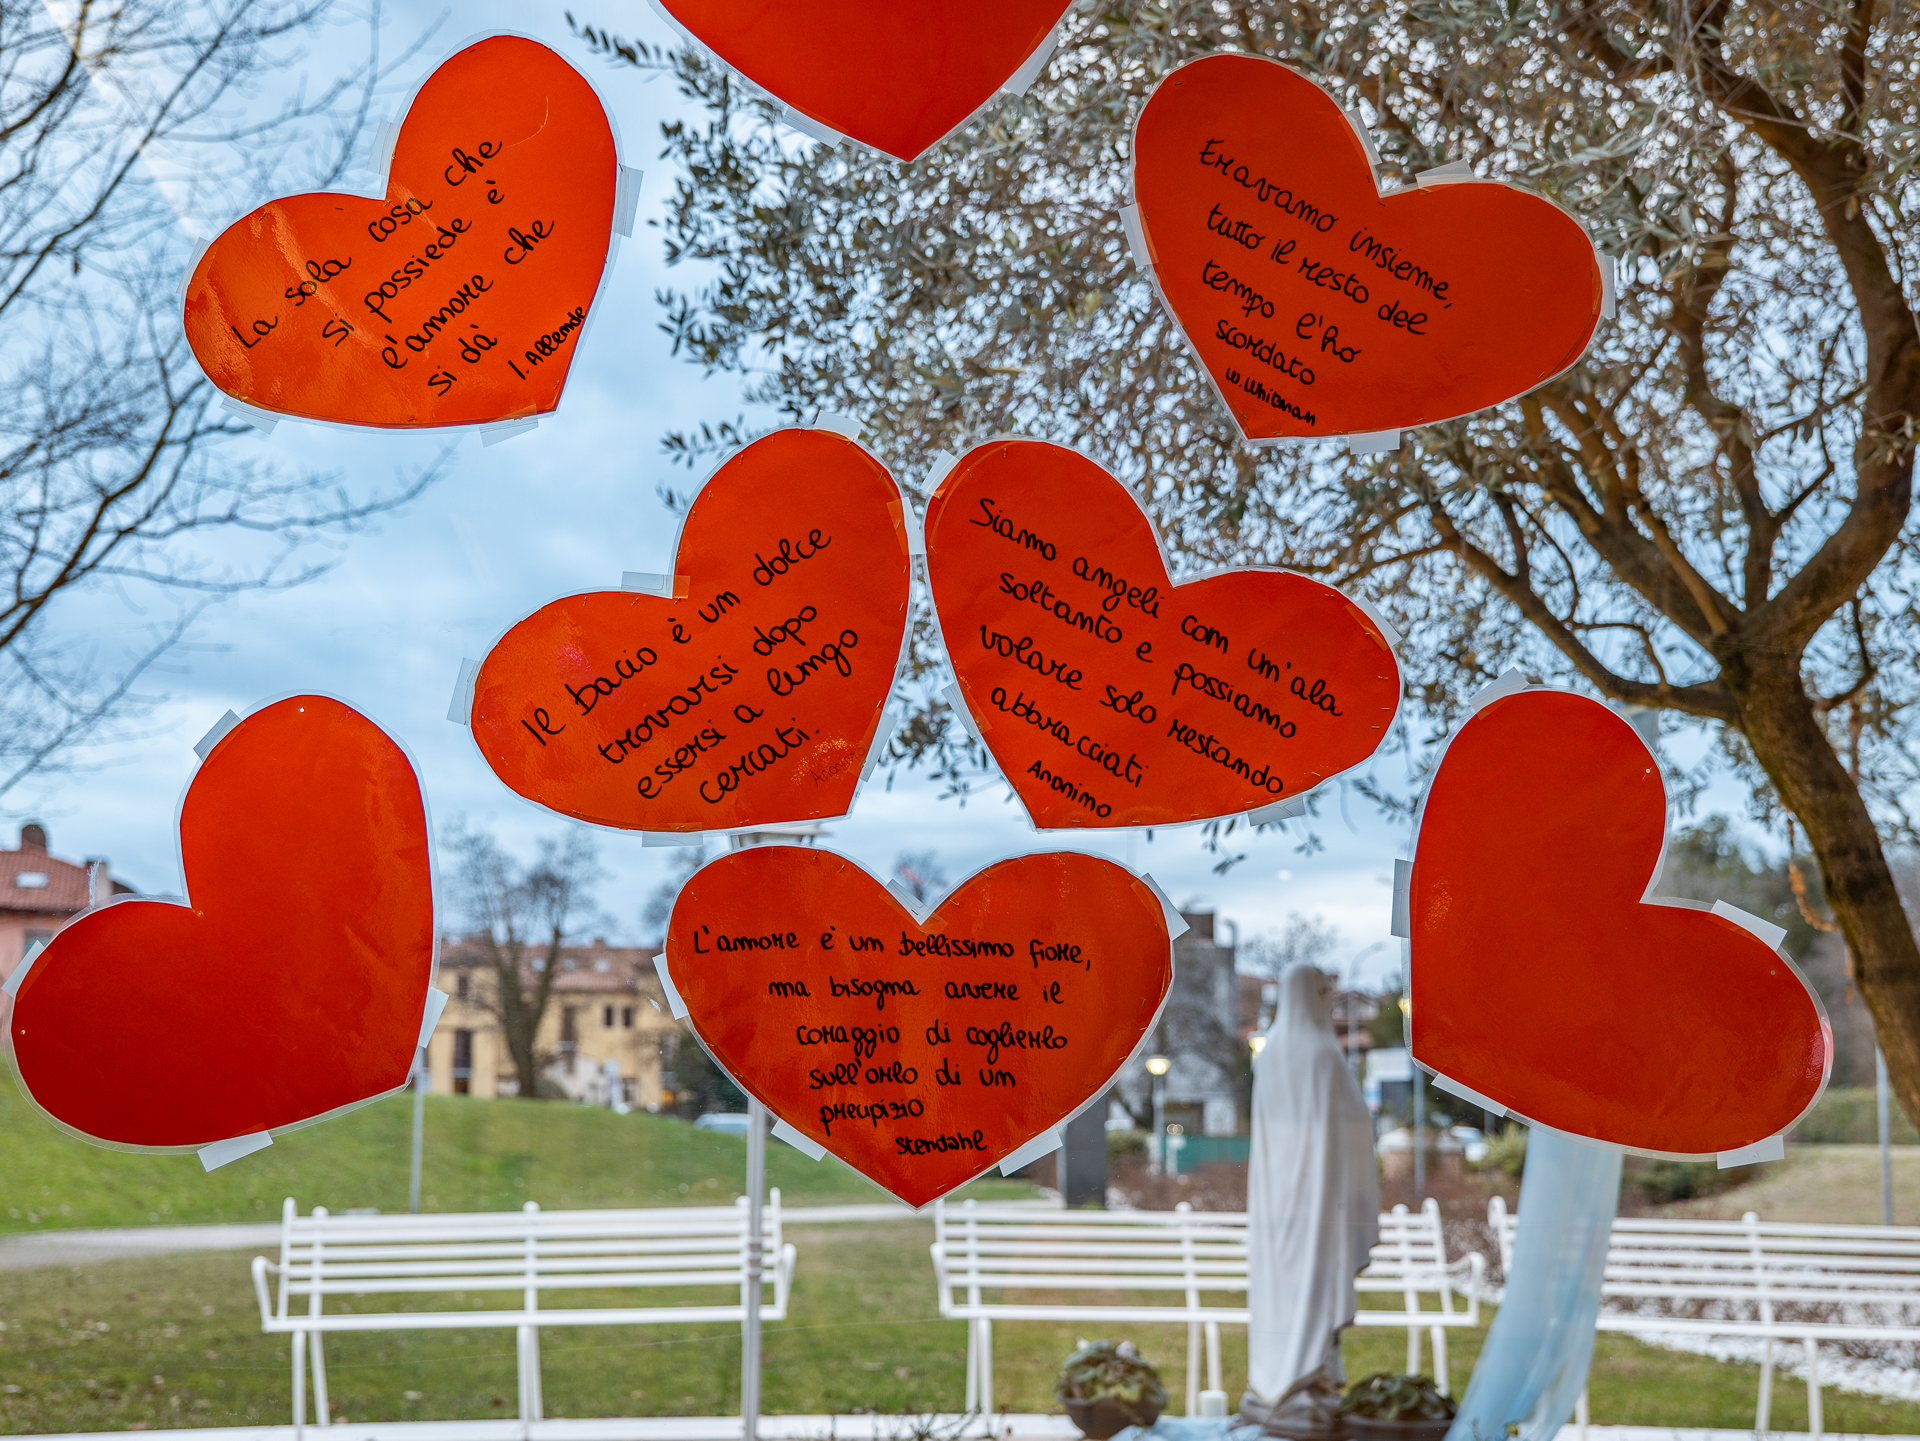 La sola cosa che
si possiede è
l'amore che
si dà
I. Allende
Eravamo insieme,
tutto il resto del
tempo l'ho
scordato
W. Whitman
Il bacio è un dolce
trovarsi dopo
essersi a lungo
cercati.
Anonimo
Siamo angeli con un'ala
soltanto e possiamo
volare solo restando
abbracciati
Anonimo
L'amore è un bellissimo fiore,
ma bisogna avere il
coraggio di coglierlo
sull'orlo di un
precipizio
Stendahl